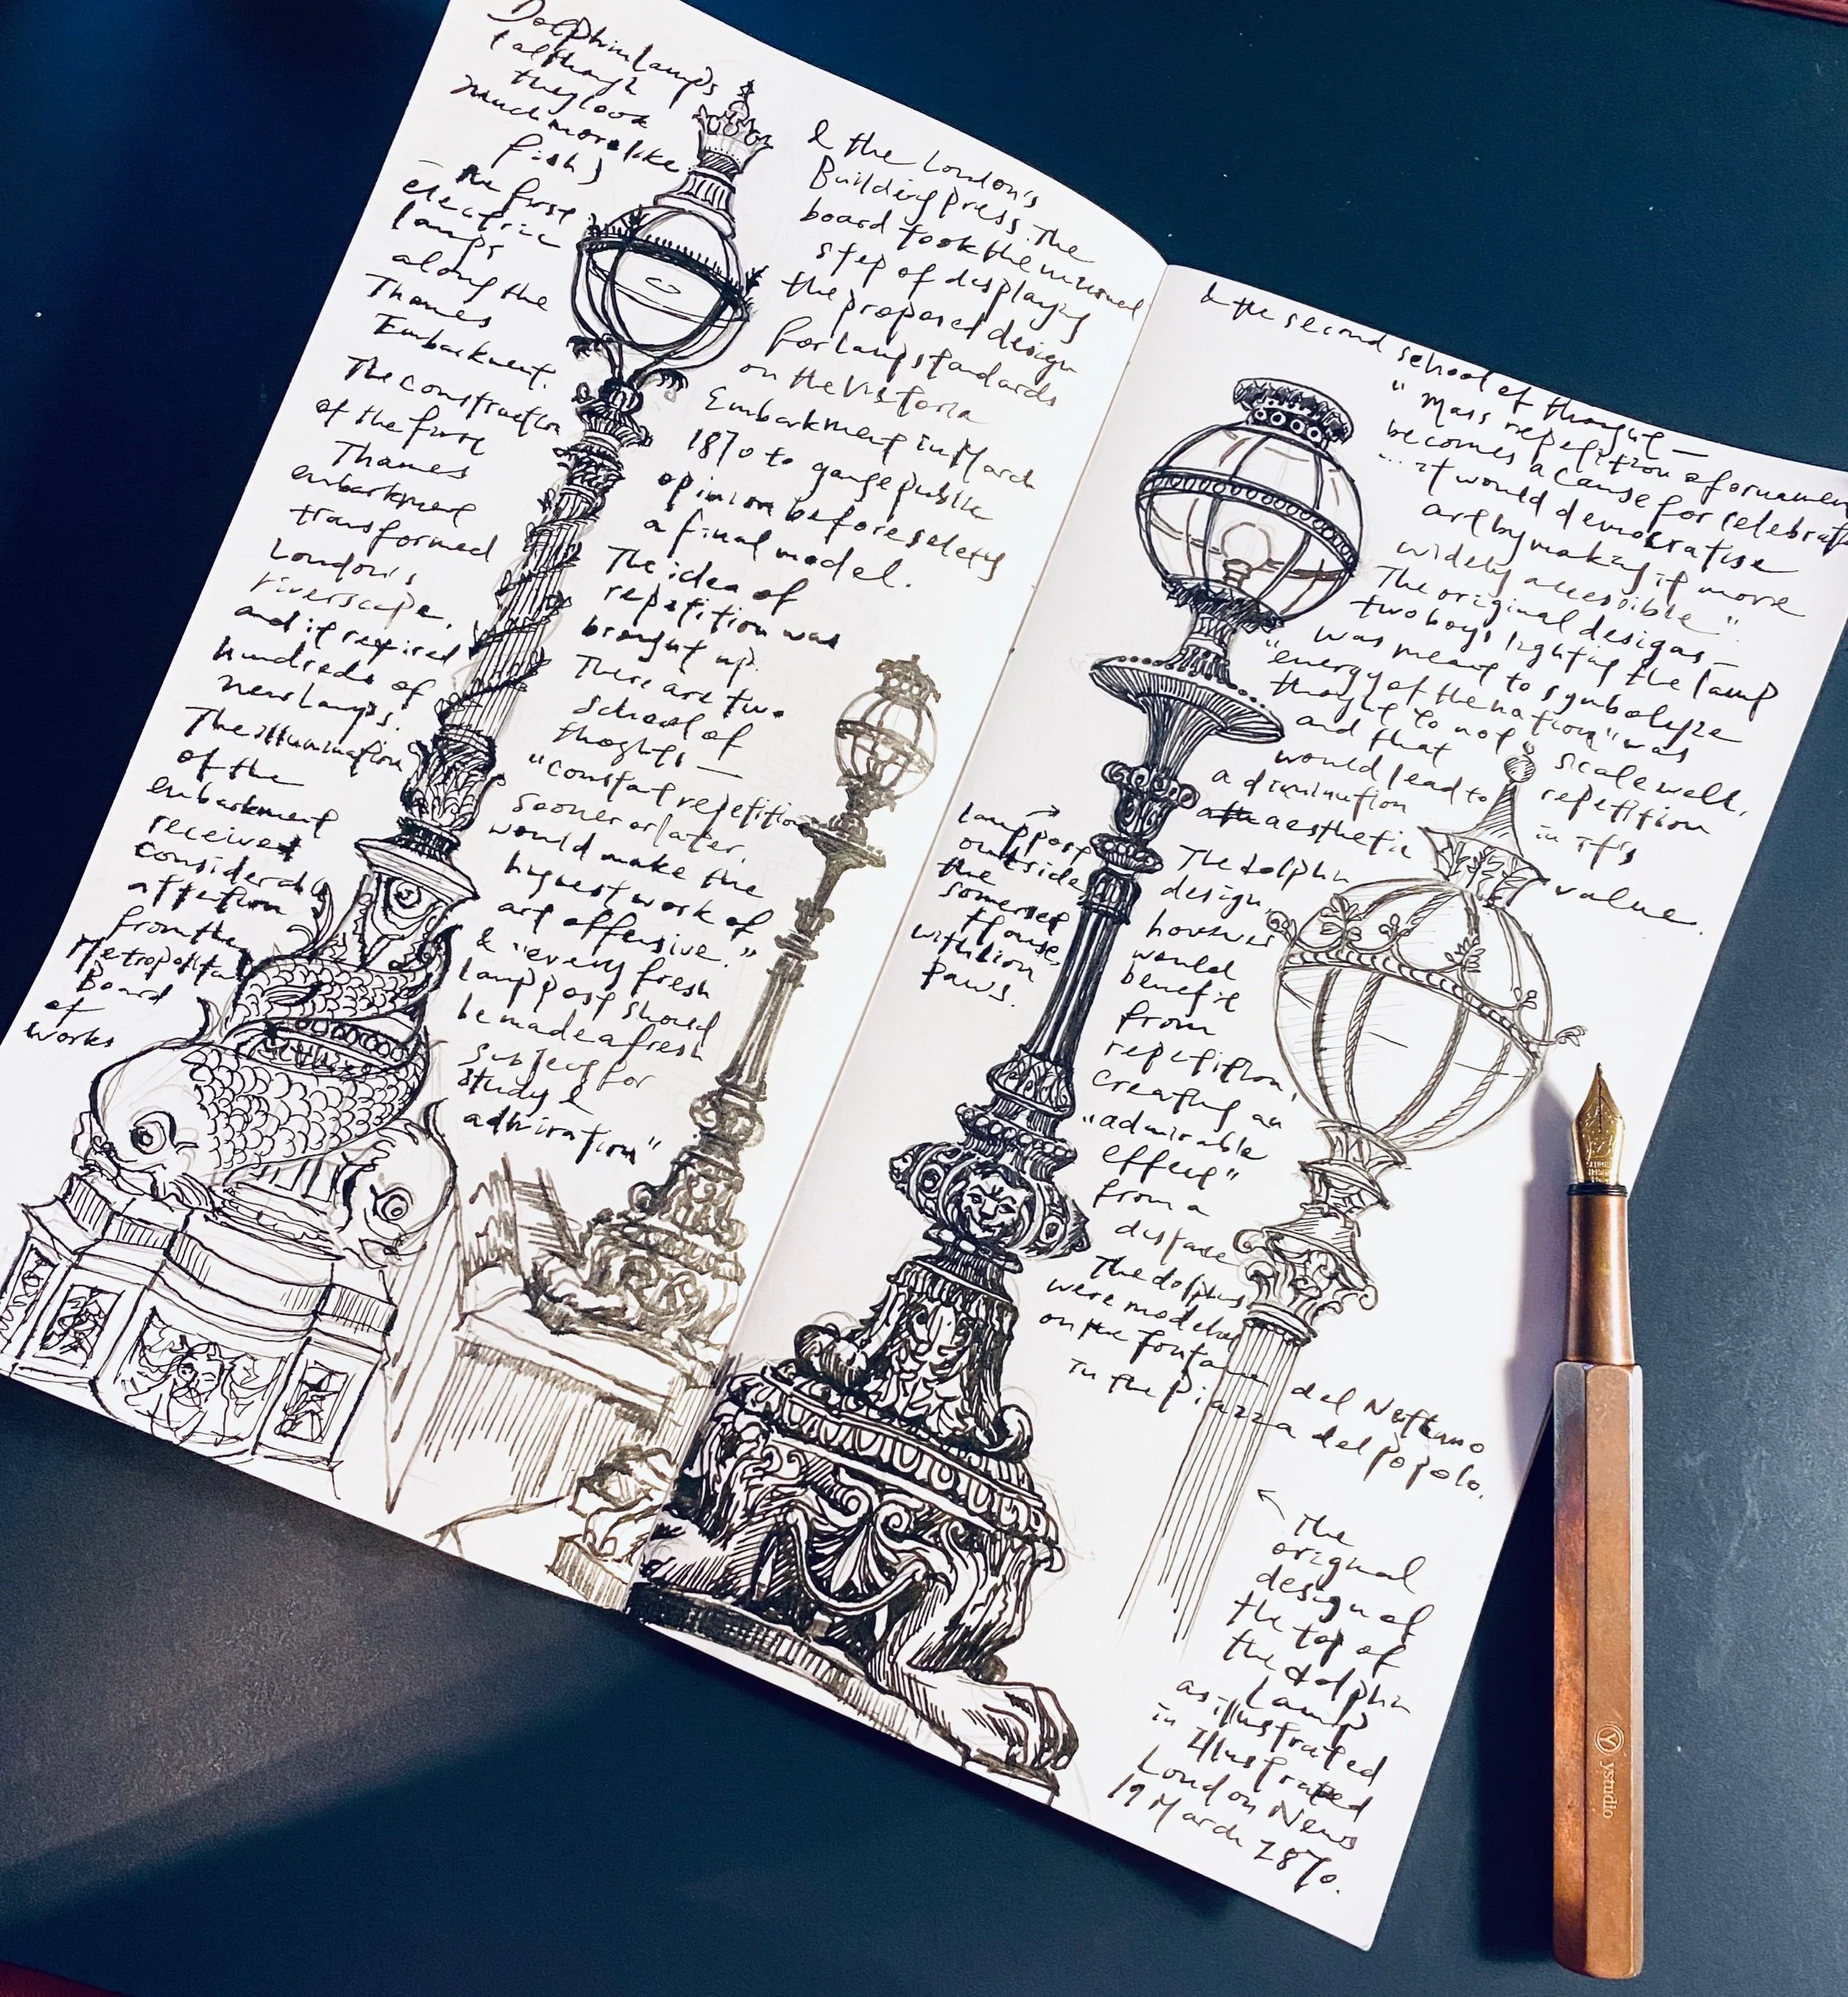 Dolphin lamps
(although
they look
much more like
fish)
— the first
electric
lamps
along the
Thames
Embankment.
The construction
of the first
Thames
embankment
transformed
London's
riverscape,
and it required
hundreds of
new lamps.
The illumination
of the
embankment
received
considerable
attention
from the
Metropolitan
Board
of
Works
& the London's
Building press. The
board took the unusual
step of displaying
the proposed design
for lamp standards
on the Victoria
Embankment in March
1870 to gauge public
opinion before selecting
a final model.
The idea of
repetition was
brought up.
There are two
school of
thoghts —
"constant repetition
sooner or later,
would make the
highest work of
art offensive."
& "every fresh
lamp post should
be made a fresh
subject for
study &
admiration"
& the second school of thought —
"Mass repetition of ornament
becomes a cause for celebration
... it would democratise
art by making it more
widely accessible".
The original designs —
two boys lighting the lamp
was meant to symbolize
"energy of the nation" was
thought to not scale well,
and that repetition
would lead to in it's
a diminution value.
aesthetic
Lamp post
outside
the
Somerset
House,
with lion
paws.
The dolphin
design,
however
would
benefit
from
repetition,
creating an
"admirable
effect"
from a
distance
The dolphins
were modelled
on the fontane del Nettuno
in the Piazza del Popolo.
The
original
design of
the top of
the dolphin
Lamp
as illustrated
in Illustrated
London News
19 March 1870.
ystudio